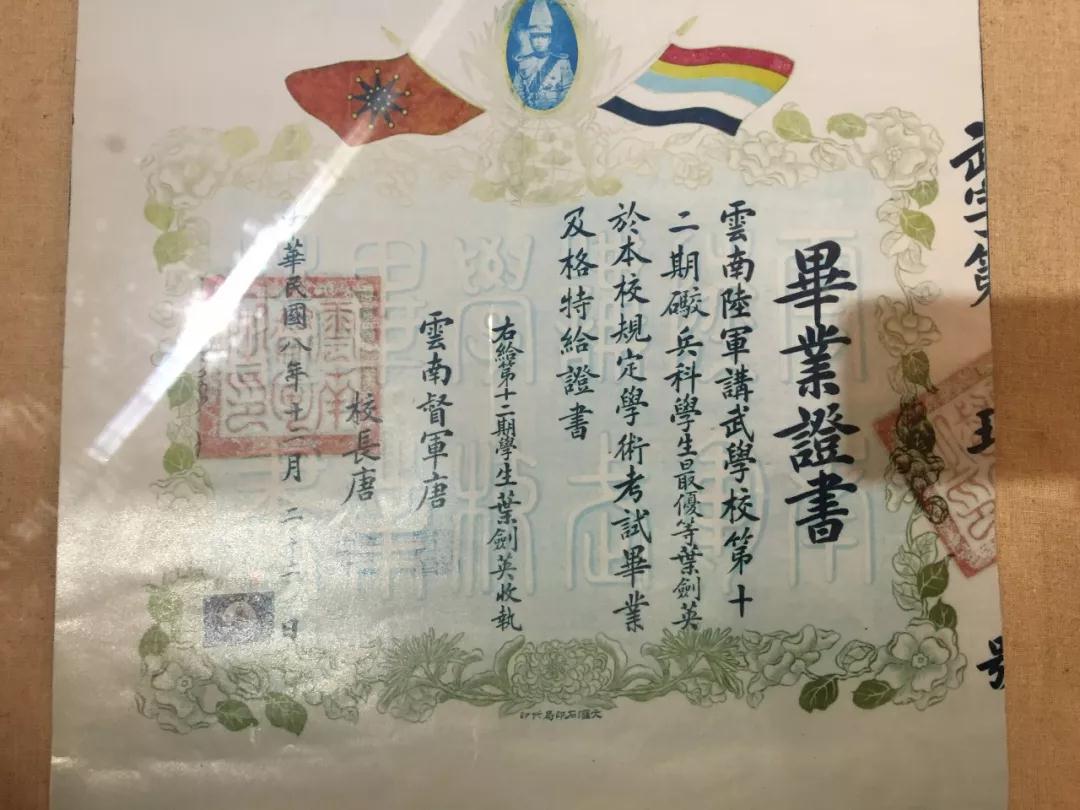 武字第
號
畢業證書
雲南陸軍講武學校第十
二期礮兵科學生最優等葉劍英
於本校規定學術考試畢業
及格特給證書
右給第十二期學生葉劍英收執
雲南督軍唐
校長唐
華民國八年十二月二十二日